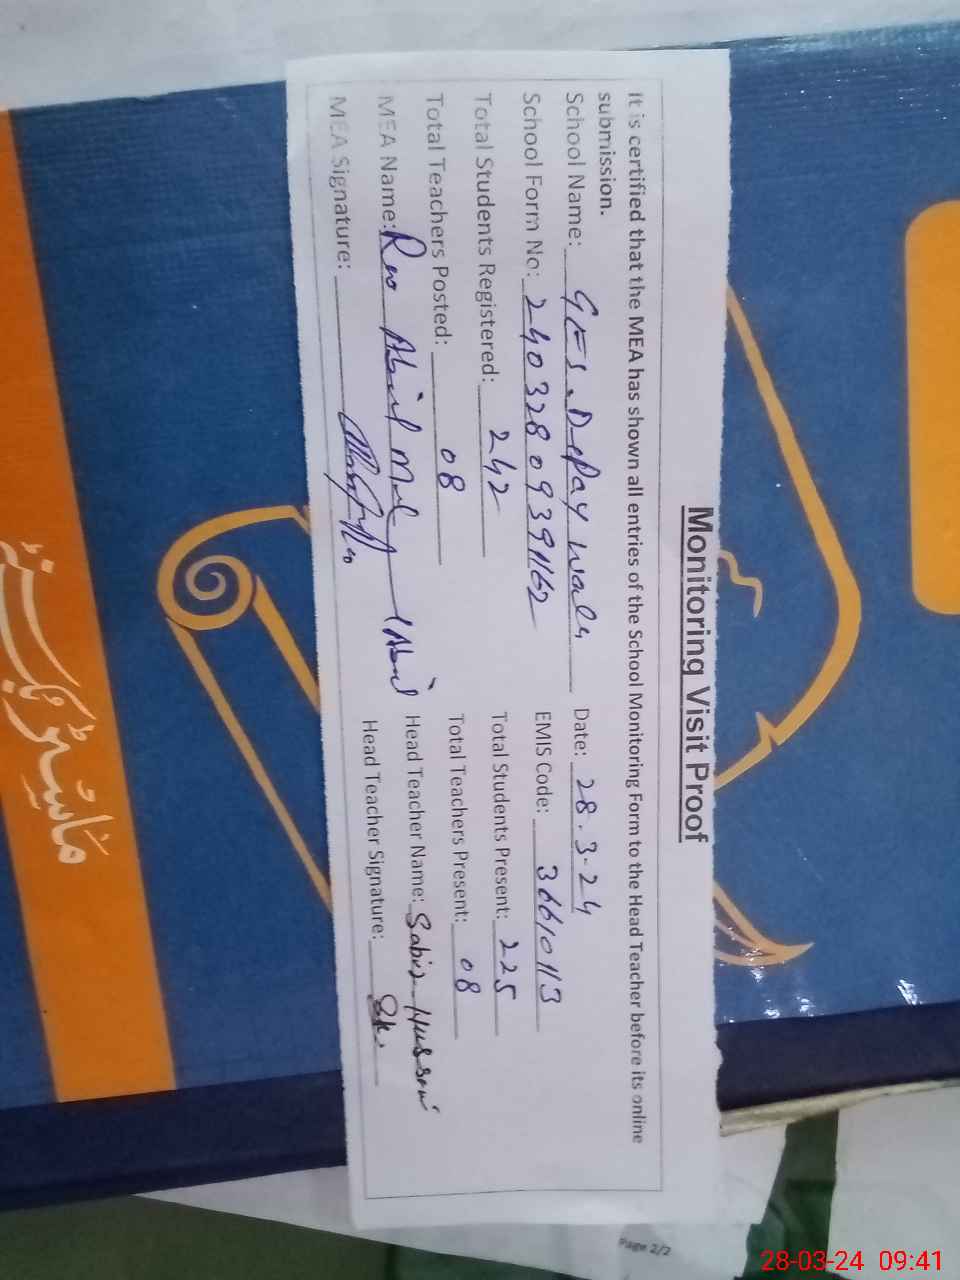 Monitoring Visit Proof
It is certified that the MEA has shown all entries of the School Monitoring Form to the Head Teacher before its online
submission.
School Name: GES. Depay wala Date: 28.3-24
School Form No: 24032809391162 EMIS Code: 36610113
Total Students Registered: 242 Total Students Present: 225
Total Teachers Posted: 08 Total Teachers Present: 08
MEA Name: Head Teacher Name: Sabir Hussain
MEA Signature: Head Teacher Signature:
Page 2/2
28-03-24 09:41